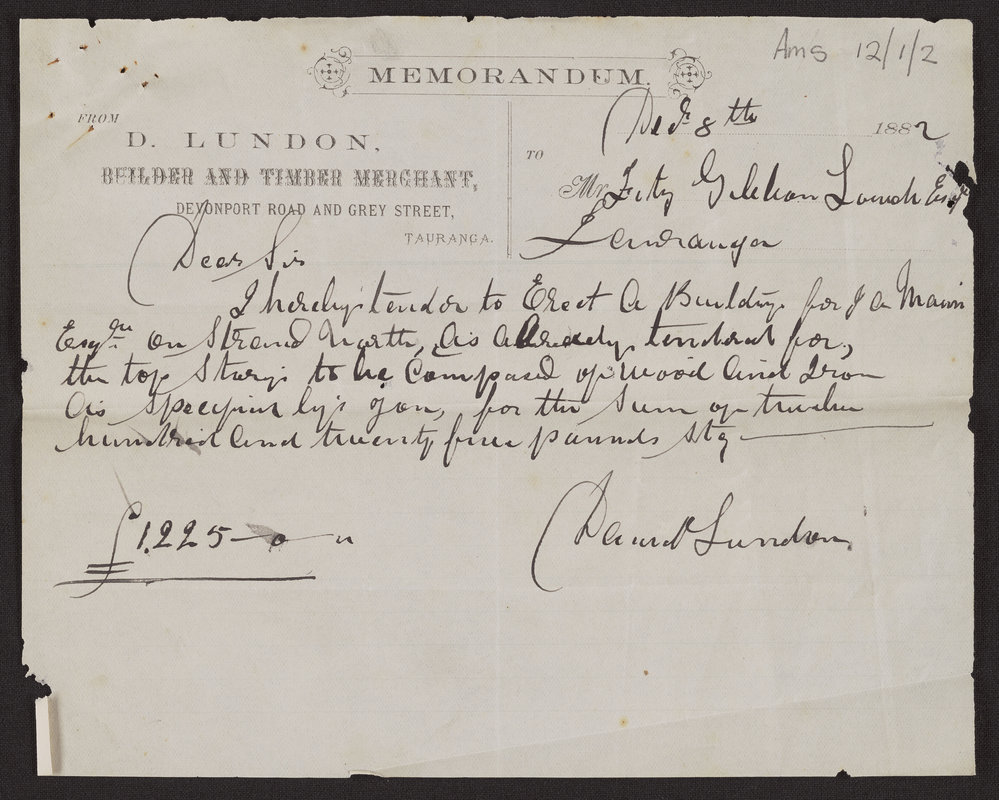 Ams 12/1/2
MEMORANDUM.
FROM
D. LUNDON,
BUILDER AND TIMBER MERCHANT,
DEVONPORT ROAD AND GREY STREET,
TAURANGA.
Decr 8th 1882
TO
Mr Fitz Louch Esqr
Tauranga
Dear Sir
I hereby tender to Erect A Building for J A Mann
Esqre on Strand North, As Already tendered for,
the top Story to be Composed of wood And Iron
As Specified by you, for the Sum of twelve
hundred And twenty five pounds Stg
£1225-0-0
David Lundon